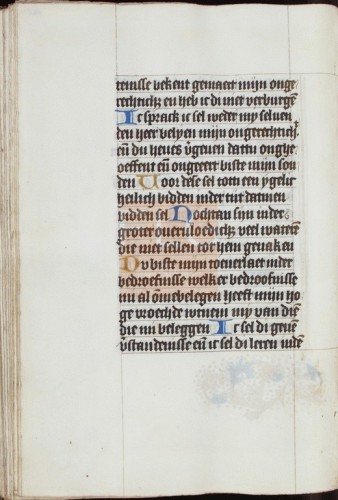 tenisse bekent gemaect mijn onge
rechticħ en heb ic di niet verburgē
Ic sprack ic sel weder my seluen
den heer belyen mijn ongerechticħ
en̄ du heues v̄geuen dattu onghe
oeffent en ongeeert biste mijn son
den Voor dese sel toti een ygelic
heilich bidden inder tijt datmen
bidden sel Nochtan sijn inder
groter oueruloedicħ veel waterē
die niet sellen tot hem genaken
Du biste mijn toeuerlaet inder
bedroefnisse welker bedroefnisse
mi al ōmebelegen heeft mijn ho
ge vroechde verneem my van dien
die mi beleggen Ic sel di geuen
v̄standenisse en̄ ic sel di leren indē